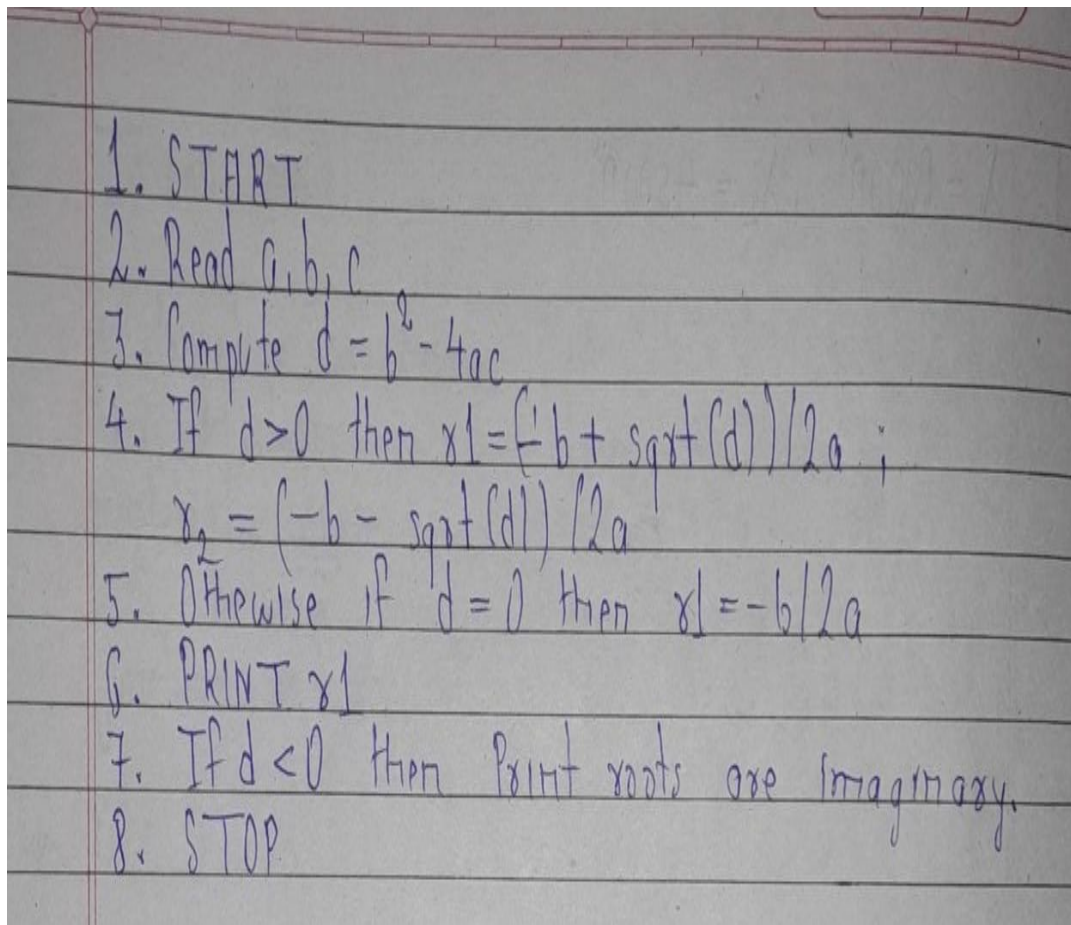 1. START
2. Read a, b, c
3. Compute d = b² - 4ac
4. If d>0 then r1 = (-b + sqrt(d))/2a ;
r₂ = (-b - sqrt(d)) /2a
5. Othewise if d = 0 then r1 = -b/2a
6. PRINT r1
7. If d <0 then Print roots are imaginary.
8. STOP